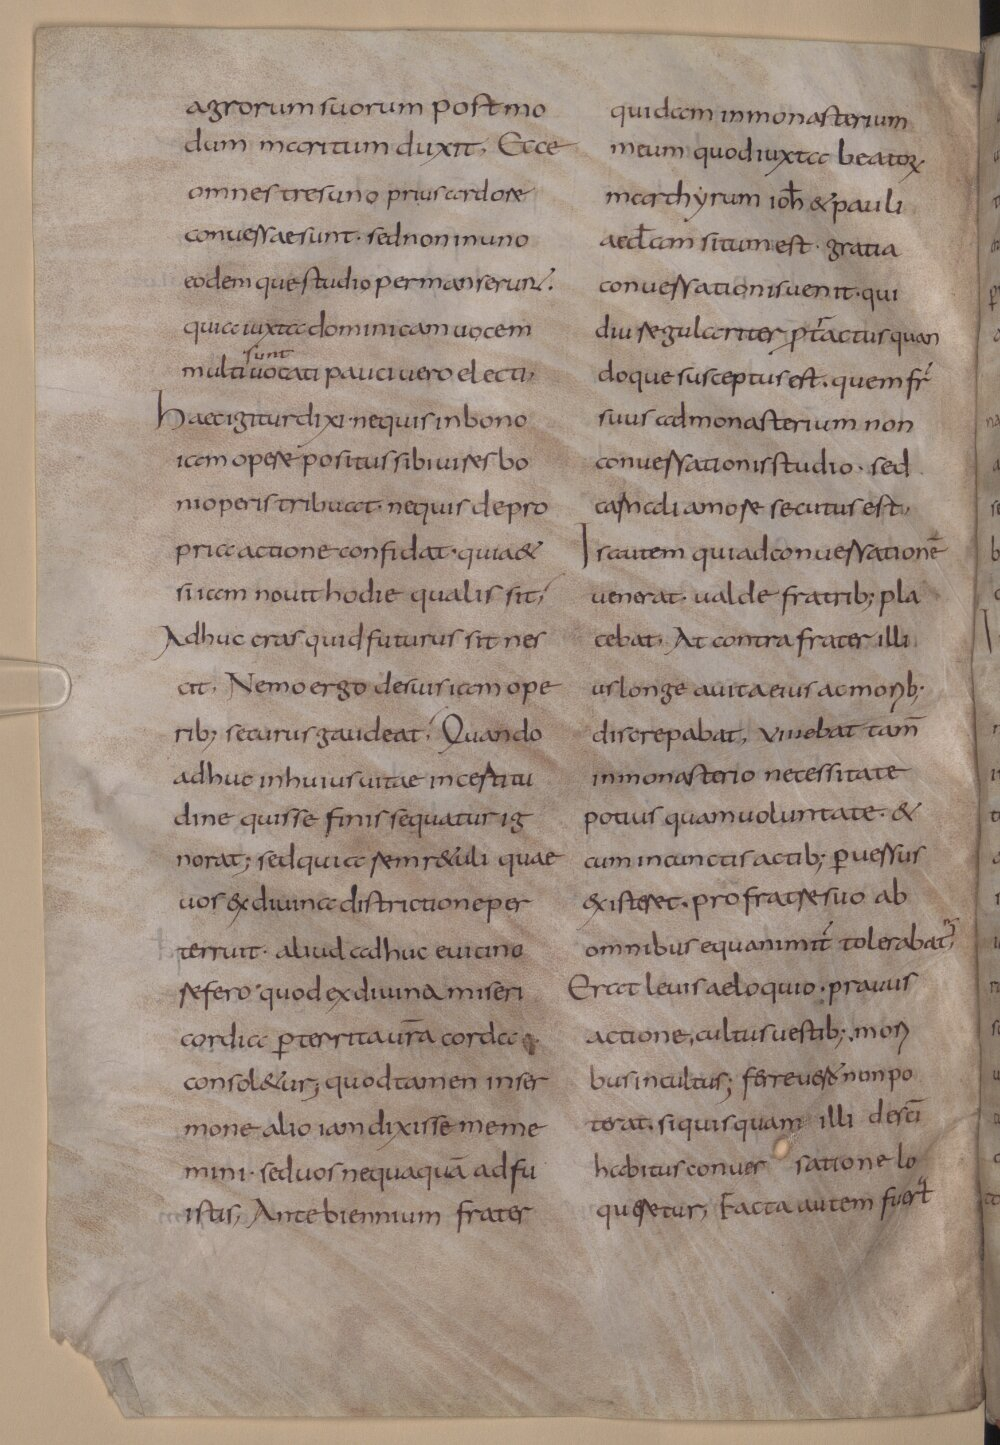 agrorum suorum postmo
dum maritum duxit, Ecce
omnes tres uno prius ardore
conuersae sunt· sed non in uno
eodemque studio permanserunt̄.
quia iuxta dominicam uocem
sunt
multi uocati pauci uero electi,
Haec igitur dixi· nequis in bono
iam opere positus sibi uires bo
ni operis tribuat· nequis de pro
pria actione confidat· quia &
si iam nouit hodie qualis sit,
Adhuc cras quid futurus sit nes
cit, Nemo ergo de suis iam ope
rib; securus gaudeat, Quando
adhuc in huius uitae incertitu
dine quis se finis sequatur ig
norat; sed quia semr&uli quae
uos ex diuina districtione per
terruit· aliud adhuc e uicino
refero quod ex diuina miseri
cordia ꝑterrita ur̄a corda
consol&ur; quod tamen in ser
mone alio iam dixisse me me
mini· sed uos nequaquā adfu
istis, Ante biennium frater
quidam in monasterium
meum quod iuxta beatoꝝ
marthyrum ioh̄ & pauli
aecl̄am situm est· gratia
conuersationis uenit· qui
diu regulariter ꝑtr̄actus quan
doque susceptus est. quem fr̄
suus ad monasterium non
conuersationis studio· sed
carnali amore secutus est,
Is autem qui ad conuersationē
uenerat· ualde fratrib; pla
cebat· At contra frater illi
us longe a uita eius ac morib;
discrepabat, uiuebat tam̄
in monasterio necessitate
potius quam uoluntate· &
cum in cunctis actib; ꝑuersus
existeret· pro fratre suo ab
omnibus equanimit̄ tolerabatur,
Erat leuis aeloquio· prauus
actione, cultus uestib; mori
bus incultus; ferre uero non po
terat. si quisquam illi de sc̄i
habitus conuer satione lo
queretur, Facta autem fuerat